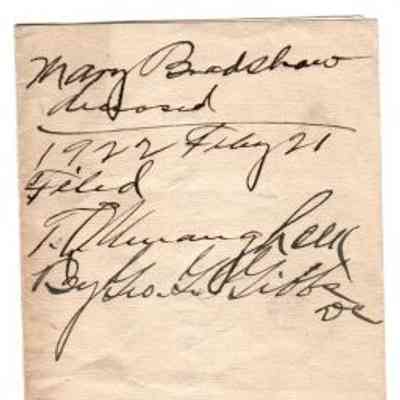 Mary Bradshaw
deceased
1922 Feby 21
Filed
T.
By Geo. G. Gibbs
DC